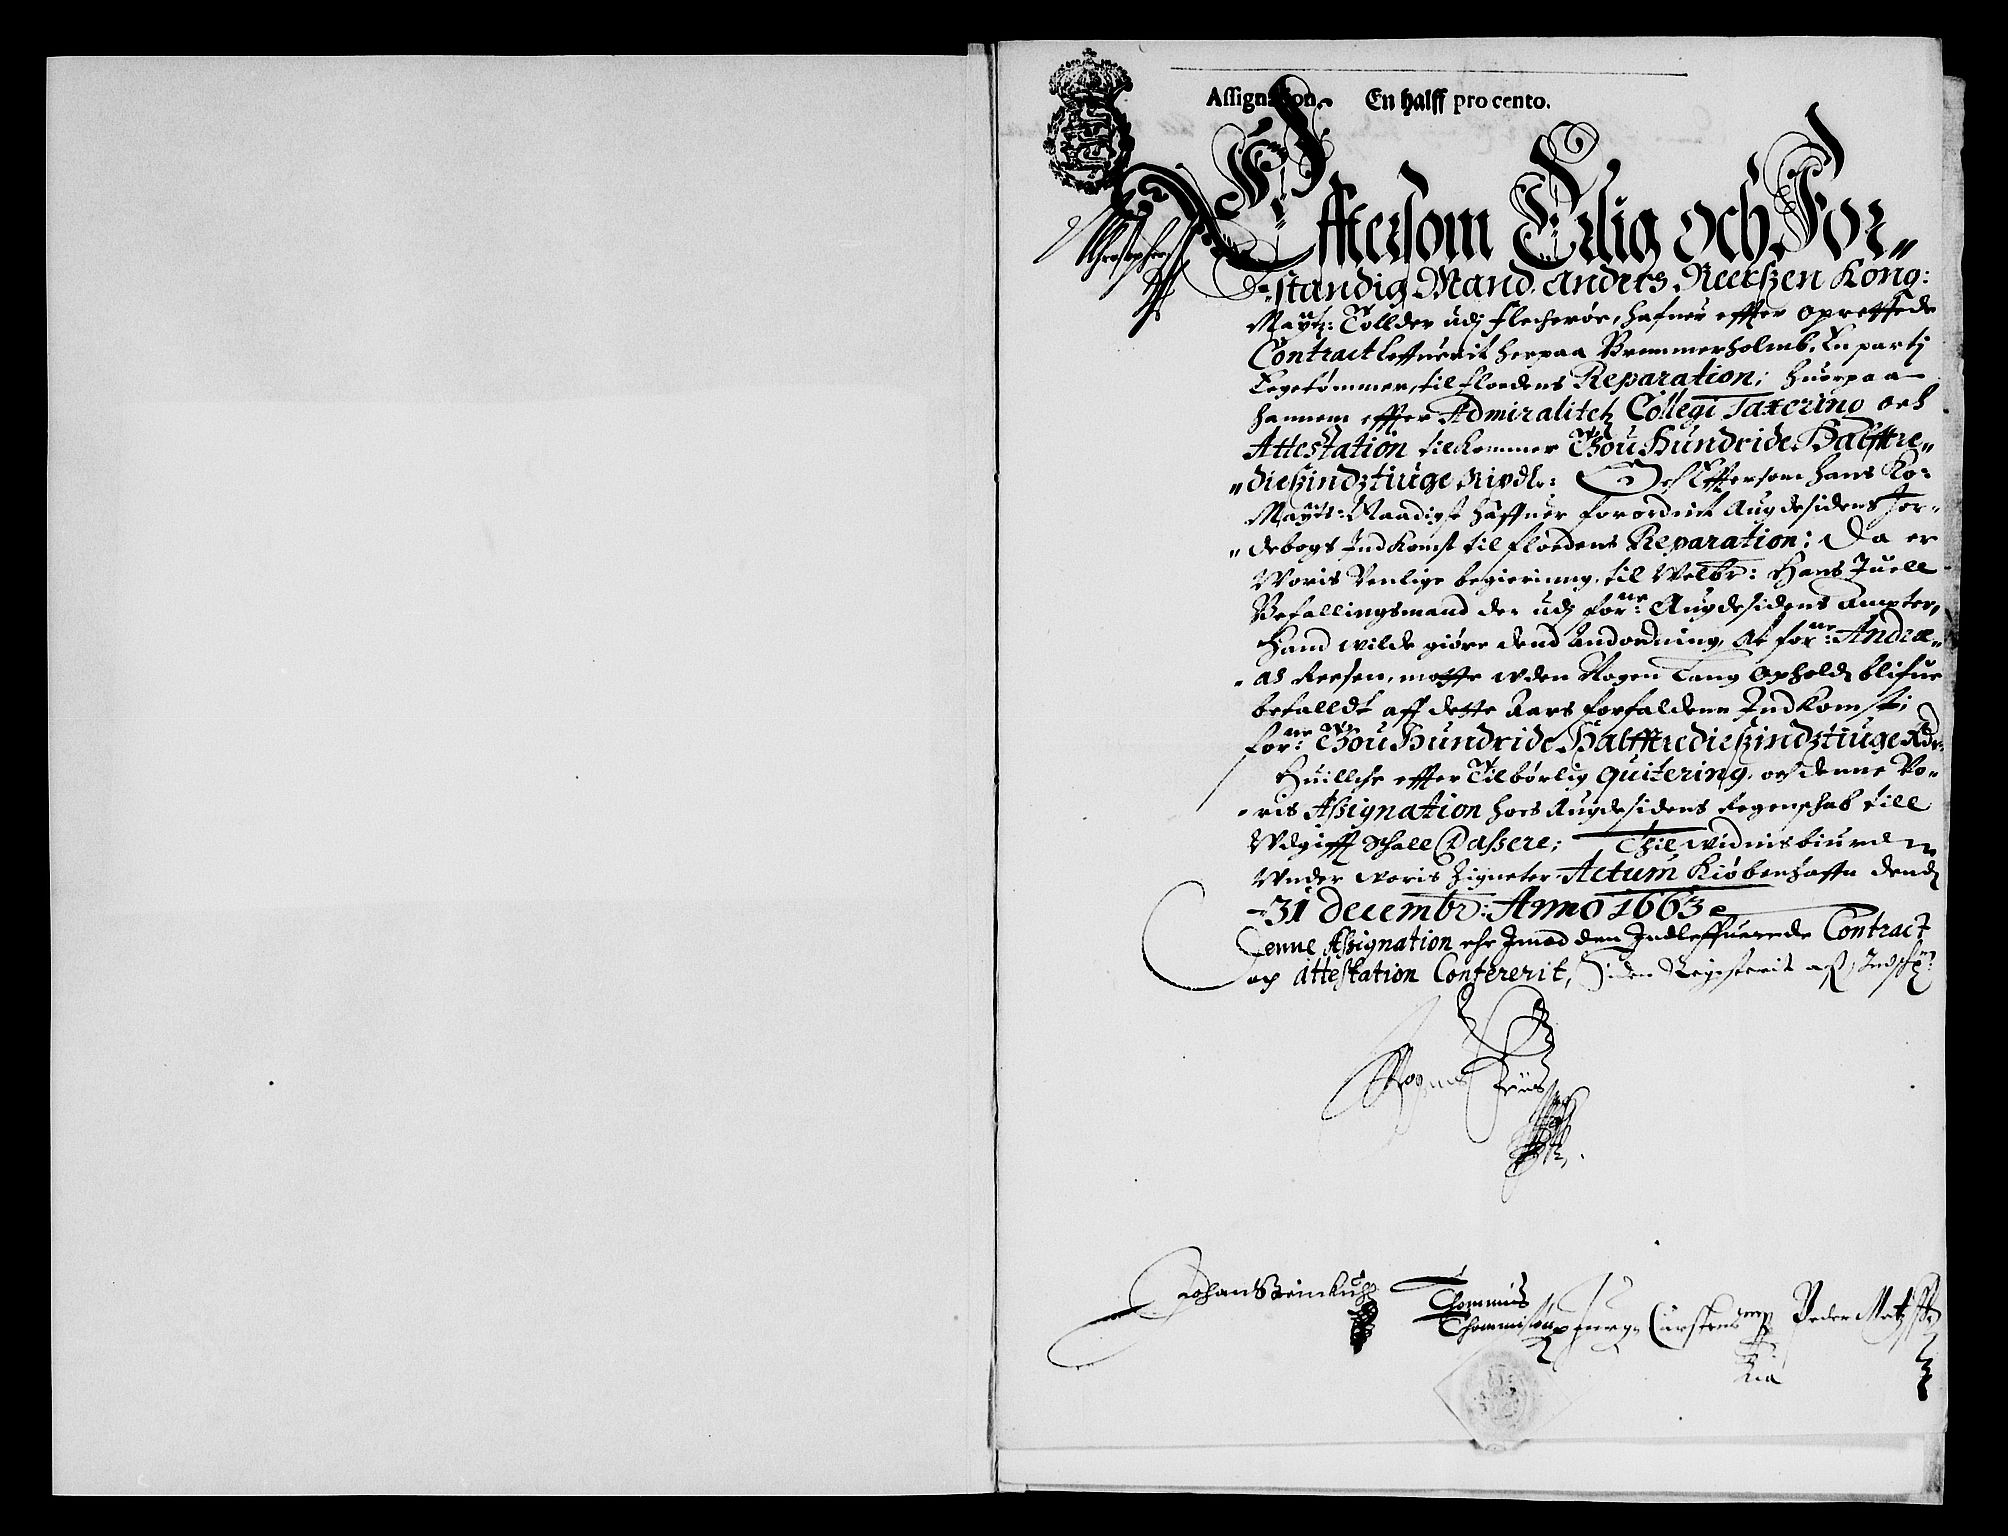 Assignation. En halff pro cento.
Efftersom Erlig och For„
„standig Mand. Anders Reerszen Kong:
Maytz: Tollder udj Flecherøe, hafuer effter oprettede
Contract leffuerit herpaa Bremmerholmb. En partj
Egetømmer, til Floedens Reparation; huorpaa
hannem effter Admiralitetz Collegi Taxering och
Attestation tilkommer Thou Hundride Halfftre„
„dieszindztiuge Rixdlr: Och Efftersom hans Ko:
Maytz: Naadigst haffuer forordnit Augdesidens Jor„
„debogs Indkomst til Floedens Reparation; Da er
Woris Venlige begierinng, til Welbr: Hans Juell
Befallingsmand der udj forne: Augdesidens Ampter,
Hand wilde giøre dend Anordning, At forne: Andre„
„as Reersen, motte uden Nogen Lang Ophold blifue
betalldt aff dette Aars forfaldenn Indkomst;
forne: Thou Hundride Halfftredieszindztiuge Rdr:
Huillche effter Tilbørlig Quitering, och denne Vo„
„ris Assignation hoes Augdesidens Regenschab till
Udgifft schall Passere; Thil widnisbiurd
Under woris Zigneter Actum Kiøbenhaffn dend
31 Decembr: Anno 1663
Denne Assignation ehr Imod den Indleffuerede Contract
og Attestation Confererit, Siden Registerit
Mogens Friis
Johan Steinkuhl Thommis Peder
Thommison Carstens